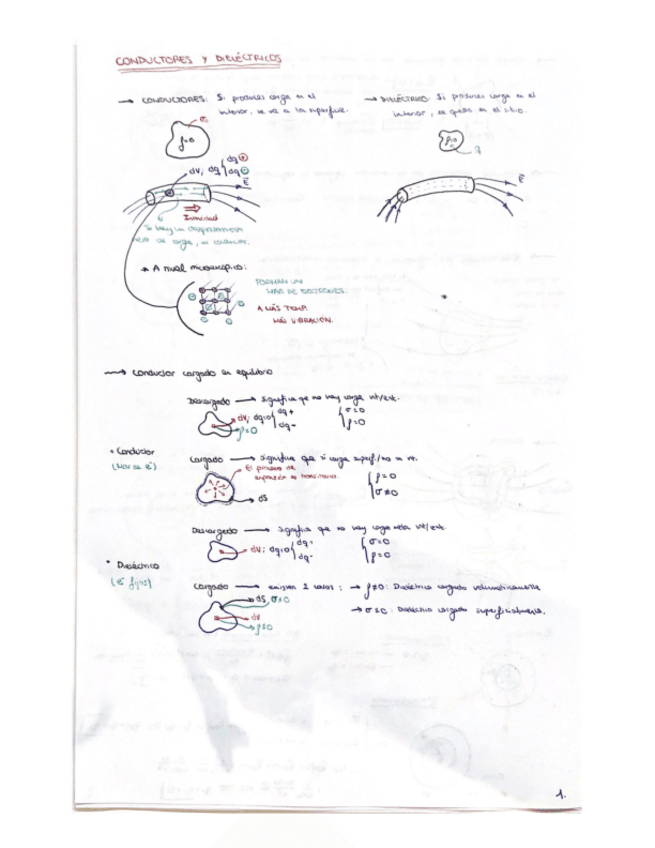 CONDUCTORES Y DIELÉCTRICOS
→ CONDUCTORES: Si produces carga en el
interior, se va a la superficie.
→ DIELÉCTRICO: Si produces carga en el
interior, se queda en el sitio.
σ
ρ=0
dV; dq { dq⊕ dq⊖
E
E
Intensidad
Si hay un desplazamiento
de carga, es conductor.
* A nivel microscópico:
FORMAN UN
MAR DE ELECTRONES.
A MÁS TEMP.
MÁS VIBRACIÓN.
→ Conductor cargado en equilibrio
Descargado → significa que no hay carga int/ext.
dV; dq=0 { dq+ dq-
ρ=0
{ σ=0 ρ=0
• Conductor
(Mar de e⁻)
Cargado → significa que sí carga superf./no in
El proceso de
es transitorio.
dS
{ ρ=0 σ≠0
Descargado → significa que no hay carga neta int/ext.
dV; dq=0 { dq+ dq-
{ σ=0 ρ=0
• Dieléctrico
(e⁻ fijos)
Cargado → existen 2 casos: → ρ≠0: Dieléctrico cargado volumétricamente
→ σ≠0: Dieléctrico cargado superficialmente.
dS σ≠0
dV
ρ≠0
1.